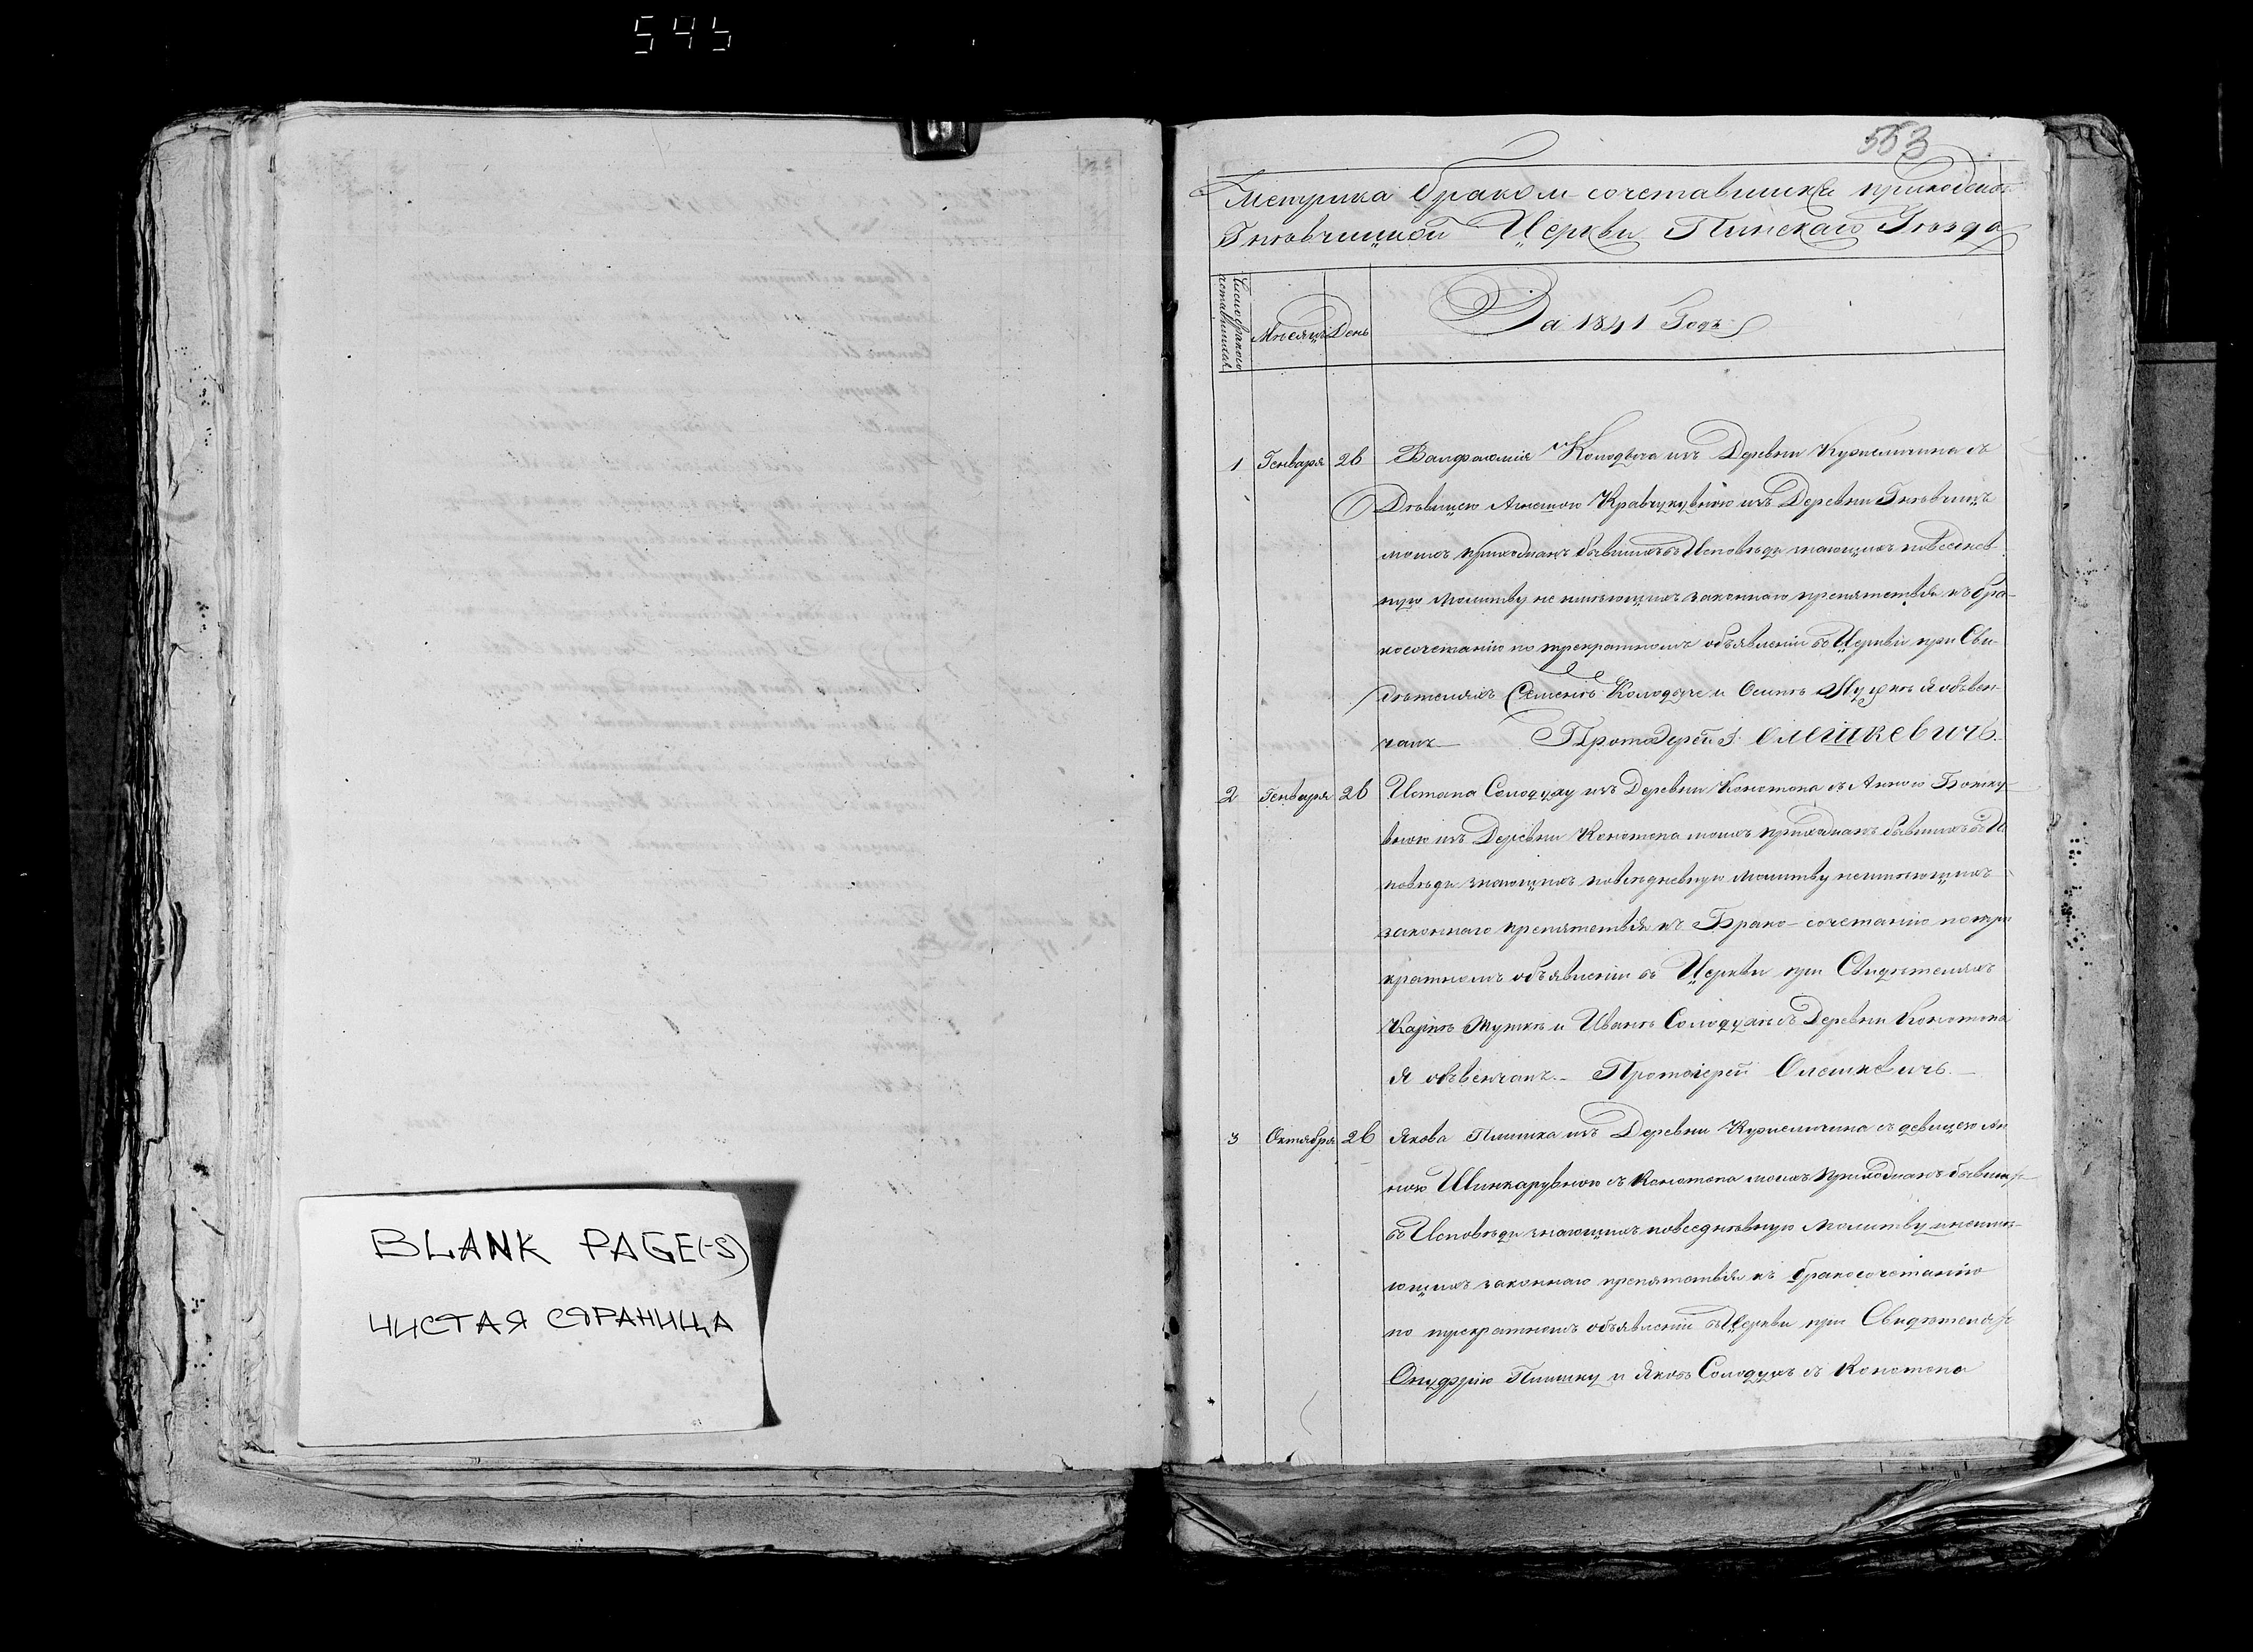 545
553
Метрика браком сочетавшихся приходской
Гневчицкой Церкви Пинскаго Уезда
Число браком сочетавшихся
Месяцъ
День
За 1841 Годъ
1 Генваря 26 Колодыча изъ Деревни Кужеличина съ
Девицею Кравчукувною изъ Деревни Гневчицъ
моихъ прихожанъ бывшихъ въ Исповеди знающихъ повседнев
ную молитву не имеющихъ законнаго препятствія къ бра-
косочетанію по трекратномъ объявленіи въ Церкви при Сви-
детеляхъ Семене Колодыче и Осипе я обвен-
чалъ Протоіерей І. Олешкевичъ.
2 Генваря 26 Солодуху изъ Деревни Конотопа съ Анною
вною изъ Деревни Конотопа моихъ прихожанъ бывшихъ въ Ис
поведи знающихъ повседневную молитву неимеющихъ
законнаго препятствія къ Брако-сочетанію по тре
кратномъ объявленіи въ Церкви при Свидетеляхъ
и Иване Солодухе съ Деревни Конотопа
я обвенчалъ. Протоіерей Олешкевичъ.
3 Октября 26 Якова изъ Деревни Кужеличина съ девицею Ан
ною Шинкарувною съ Конотопа моихъ прихожанъ бывших
въ Исповеди знающихъ повседневную молитву неиме-
ющихъ законнаго препятствія къ бракосочетанію
по трекратномъ объявленіи въ Церкви при Свидетелях
Онуфрію и Якове Солодухе съ Конотопа
BLANK PAGE(-S)
ЧИСТАЯ СТРАНИЦА